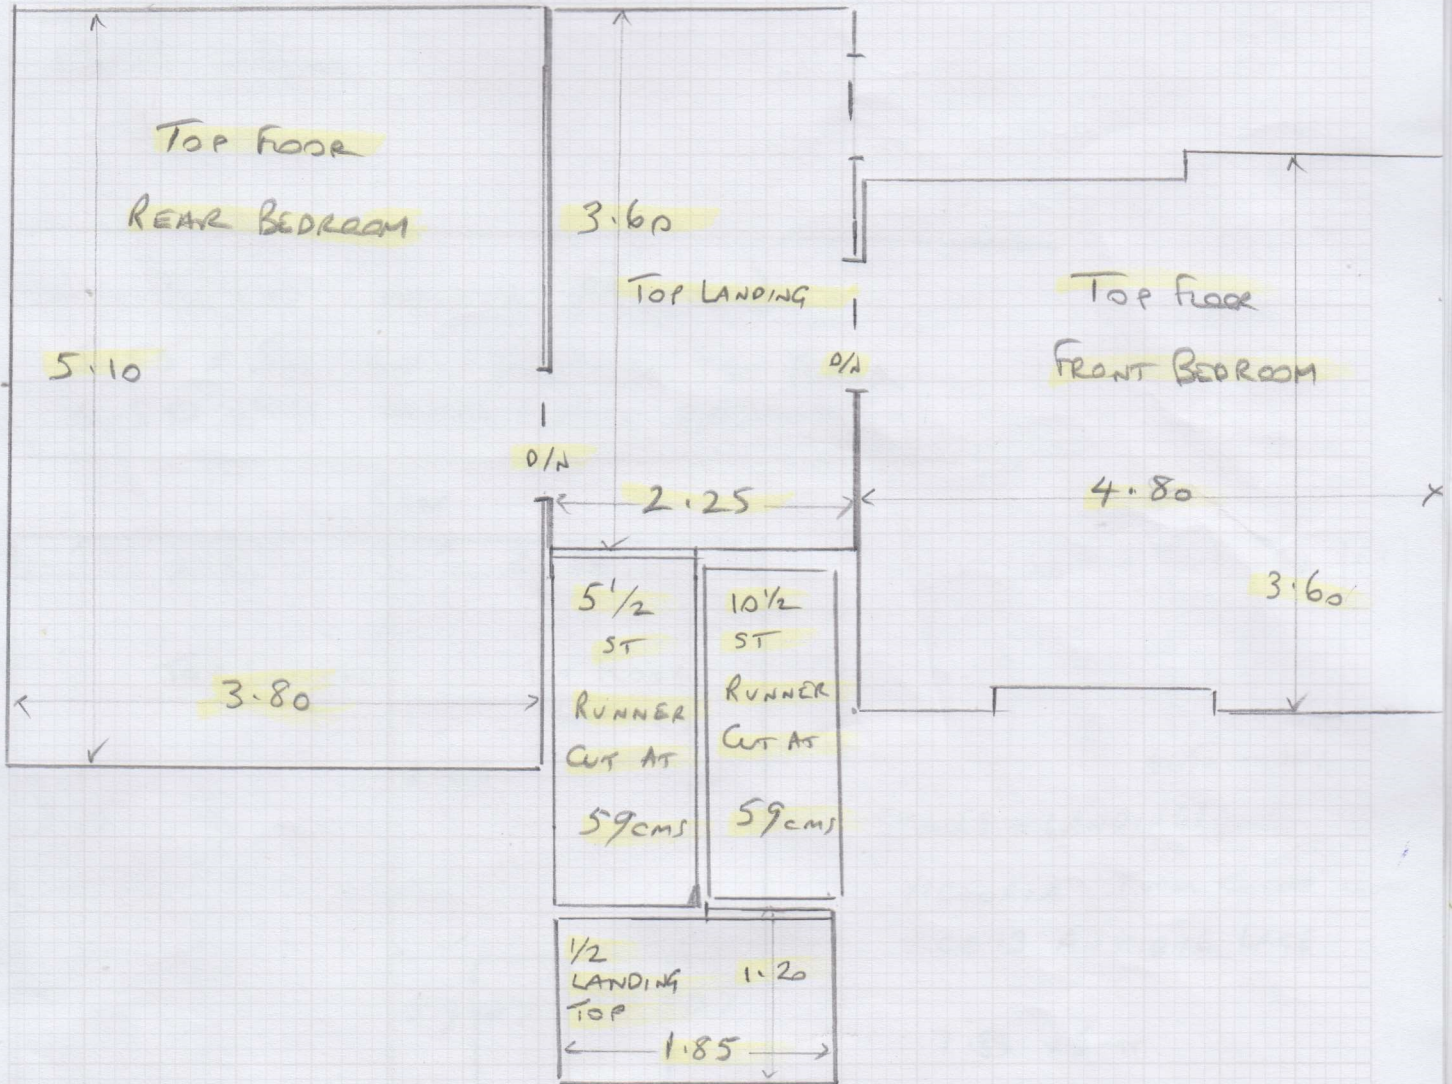 TOP FLOOR
REAR BEDROOM
5.10
3.80
D/N
3.60
TOP LANDING
2.25
D/N
TOP FLOOR
FRONT BEDROOM
4.80
3.60
5 1/2
ST
RUNNER
CUT AT
59cms
10 1/2
ST
RUNNER
CUT AT
59cms
1/2
LANDING
TOP
1.20
1.85